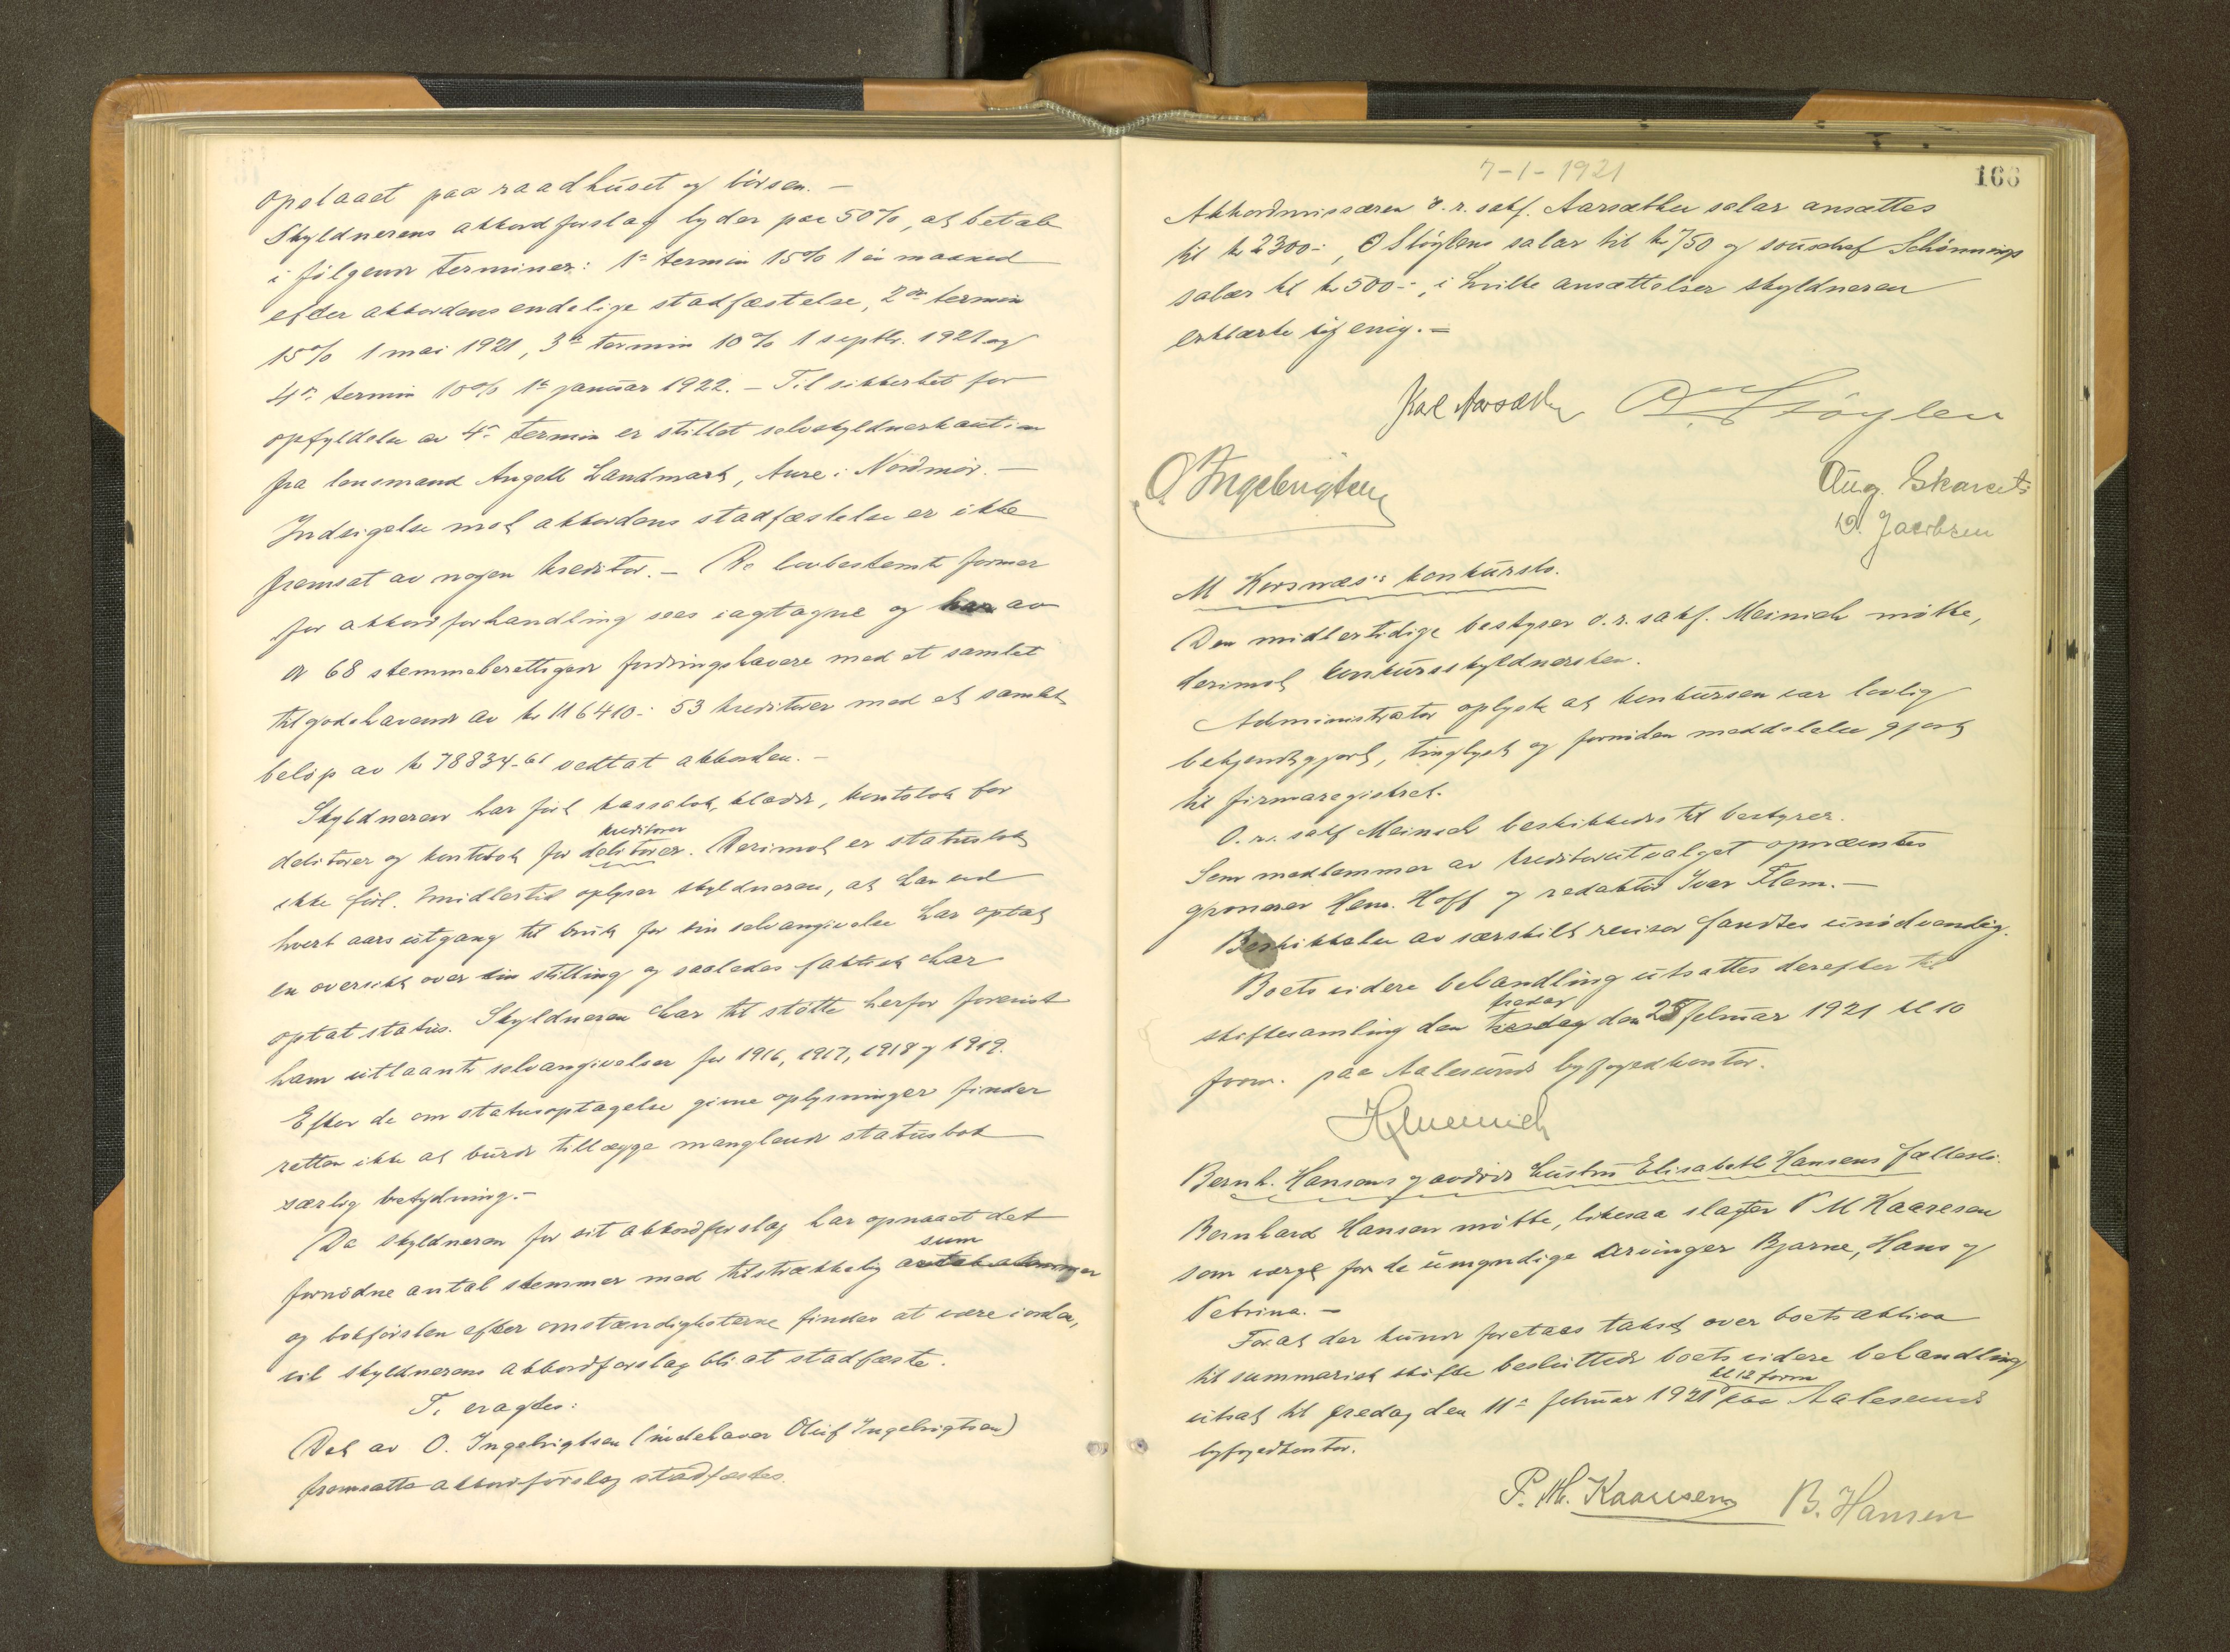 opslaaet paa raadhuset og børsen. —
Skyldnerens akkordforslag lyder paa 50%, at betale
i følgende terminer: 1ste termin 15% 1 en maaned
efter akkordens endelige stadfæstelse, 2den termin
15% 1 mai 1921, 3de termin 10% 1 septbr. 1921 og
4de termin 10% 1ste januar 1922. — Til sikkerhet for
opfyldelse av 4de termin er stillet selvskyldnerkaution
fra lensmand Angell Landmark, Aure i Nordmør. —
Indsigelse mot akkordens stadfæstelse er ikke
fremsat av nogen kreditor. — De lovbestemte former
for akkordforhandling sees iagtagne og har av
68 stemmeberettigede fordringshavere med et samlet
tilgodehavende av kr 116410.- 53 kreditorer med et samlet
beløp av kr 78834.61 vedtat akkorden. —
Skyldneren har ført kassabok, kladde, kontobok for
debitorer og kontobok for debitorer kreditorer. Derimot er statusbok
ikke ført. Imidlertid oplyser skyldneren, at han ved
hvert aars utgang til bruk for sin selvangivelse har optat
en oversikt over sin stilling og saaledes faktisk har
optat status. Skyldneren har til støtte herfor forevist
ham utlaante selvangivelser for 1916, 1917, 1918 og 1919.
Efter de om statusoptagelse givne oplysninger finder
retten ikke at burde tillægge manglende statusbok
særlig betydning. —
Da skyldneren for sit akkordforslag har opnaaet det
fornødne antal stemmer med tilstrækkelig antal stemmer sum
og bokførslen efter omstændigheterne findes at være i orden,
vil skyldnerens akkordforslag bli at stadfæste.
Ti eragtes:
Det av O. Ingebrigtsen (indehaver Oluf Ingebrigtsen)
fremsatte akkordforslag stadfæstes.
7-1-1921
166
Akkordmissæren o.r. sakf. Aarsæther salar ansættes
til kr 2300.-, O Støylens salar til kr 750 og Schønnings
salær til kr 500.-, i hvilke ansættelser skyldneren
erklærte sig enig. =
Kal Aarsæther O. Støylen
O. Ingebrigtsen
Aug. Skarset
D. Jacobsen
M Korsnæs's konkursbo.
Den midlertidige bestyrer o.r. sakf. Meinich møtte,
derimot konkursskyldnersken.
Administrator oplyste at konkursen var lovlig
bekjendtgjort, tinglyst og fornøden meddelelse gjort
til firmaregistret.
O.r. sakf Meinich beskikkedes til bestyrer.
Som medlemmer av kreditorutvalget opnævntes
grosserer Henr. Hoff og redaktør Ivar Flem. —
Beskikkelse av særskilt revisor fandtes unødvendig.
Boets videre behandling utsattes derefter til
skiftesamling den tirsdag fredag den 25 februar 1921 kl 10
form. paa Aalesunds byfogedkontor.
H Meinich
Bernh. Hansens og avdøde hustru Elisabeth Hansens fællesbo.
Bernhard Hansen møtte, likesaa slagter P M Kaaresen
som værge for de umyndige arvinger Bjarne, Hans og
Petrina. —
For at der kunde foretaes takst over boets aktiva
til summarisk skifte besluttedes boets videre behandling
utsat til fredag den 11te februar 1921 kl 12 form paa Aalesunds
byfogedkontor.
P. M. Kaaresen B. Hansen